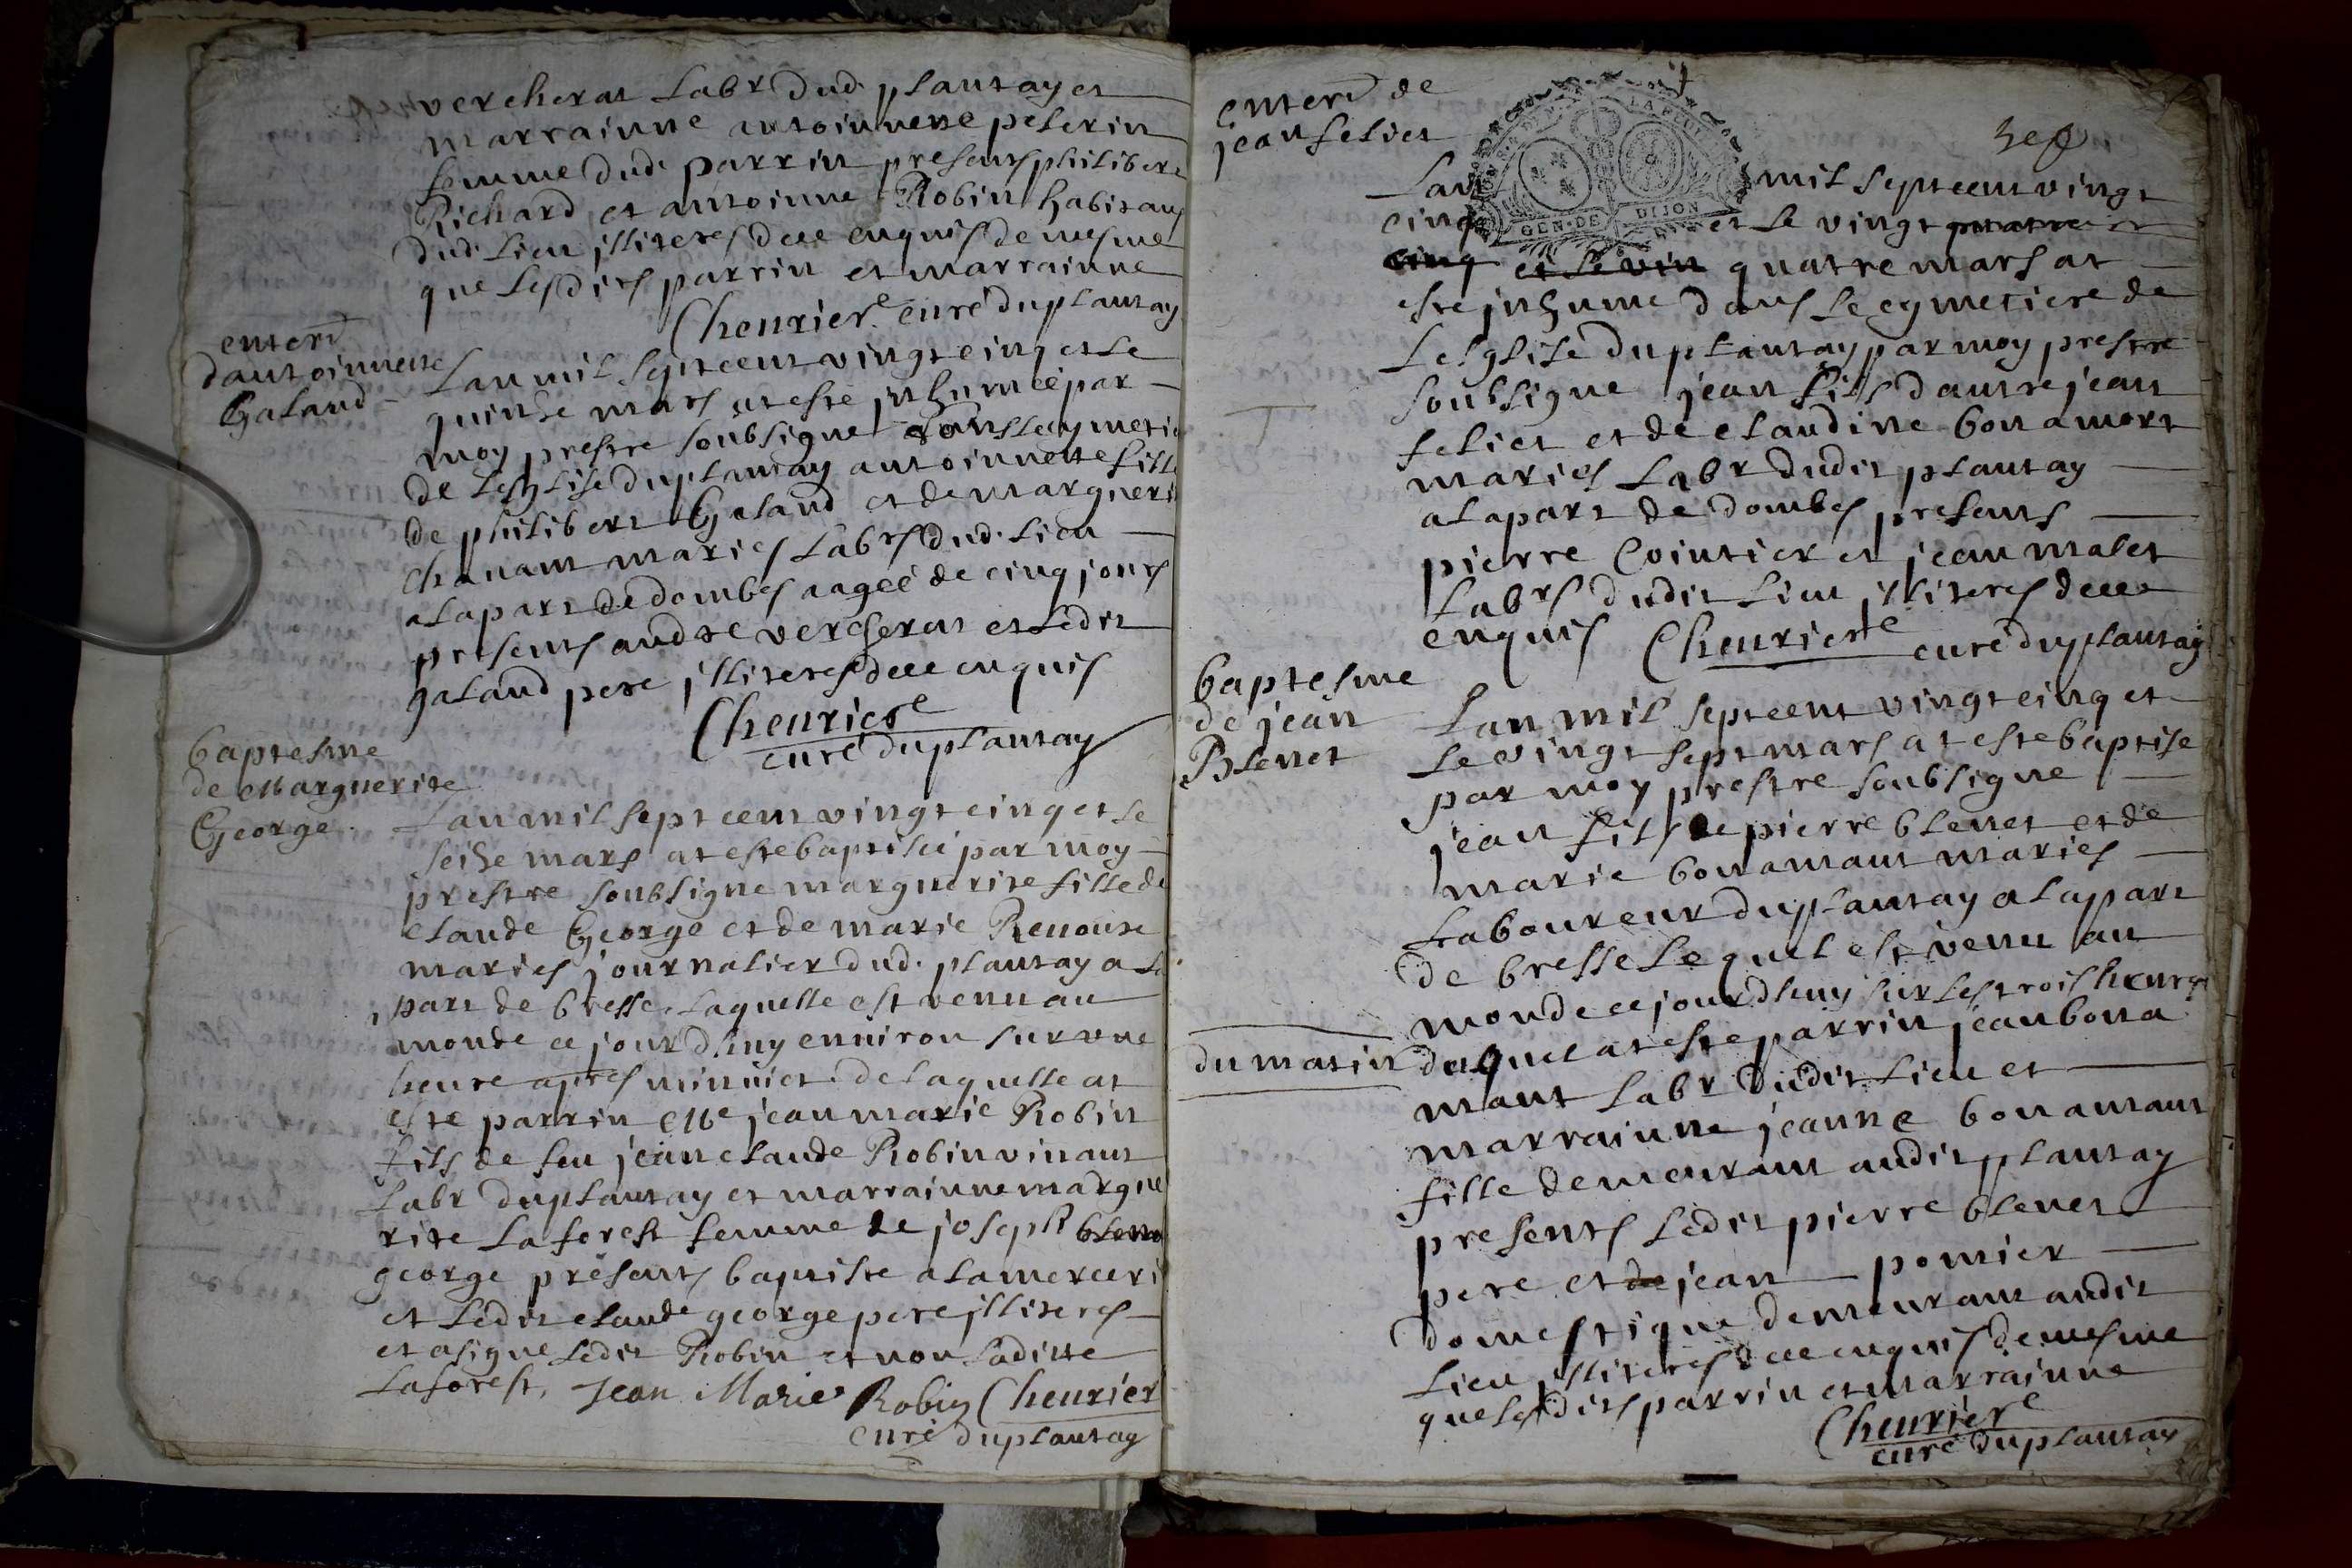 vercherat Labr dud. plantay et
marrainne antoinnette pelerin
femme dud. parrin presents philibert
Richard et antoinne Robin habitans
dud. Lieu jlliteres dece enquis de mesme
que lesdits parrin et marrainne
Cheurier curé du plantay
enterrt
dantoinnette
Galand
Lan mil sept cent vingt cinq et Le
quinze mars at esté jnhumée par
moy prestre soubsigné dans le cymetie
de Leglise du plantay antoinnette fille
de philibert Galand et de margueri
chanant mariés Labrs dud. Lieu
a la part de dombes aagée de cinq jours
presents andre vercherat et Ledit
galand pere jlliteres dece enquis
Cheuriere
curé du plantay
baptesme
de Marguerite
George
Lan mil sept cent vingt cinq et Le
seize mars at esté baptisée par moy
prestre soubsigne marguerite fille de
claude George et de marie Renouse
mariés journalier dud. plantay a La
part de bresse. laquelle est venu au
monde ce jourdhuy environ sur une
heure apres minuict. de laquelle at
este parrin Me jean marie Robin
fils de feu jean claude Robin vivant
Labr du plantay et marrainne margue
rite Laforest femme de joseph
george présents baptiste alamerceri
et Ledit claude george pere jlliteres
et a signé Ledit Robin et non Laditte
Laforest. Jean Marie Robin Cheurier
curé du plantay
enterrt de
jean feliet
Lan mil sept cent vingt
cinq et Le vingt quatre et
cinq et Le vin quatre mars at
este jnhumé dans Le cymetiere de
Leglise du plantay par moy prestre
soubsigne jean fils dautre jean
feliet et de claudine bonamort
mariés Labr dudit plantay
a la part de dombes presents
pierre Cointier et jean malet
Labrs dudit Lieu jlliteres dece
enquis Cheuriere curé du plantay
GEN. DE DIJON
baptesme
de jean
Blenet
Lan mil sept cent vingt cinq et
Le vingt sept mars at este baptise
par moy prestre soubsigne
jean fils de pierre blenet et de
marie bonamant mariés
Laboureur du plantay a la part
de bresse Lequel est venu au
monde ce jourdhuy sur Les trois heures
du matin duquel at este parrin jean bona
mant Labr dudit Lieu et
marrainne jeanne bonamant
fille demeurant audit plantay
presents Ledit pierre blenet
pere et de jean pomier
domestique demeurant audit
Lieu jlliteres dece enquis de mesme
que lesdits parrin et marrainne
Cheuriere
curé du plantay